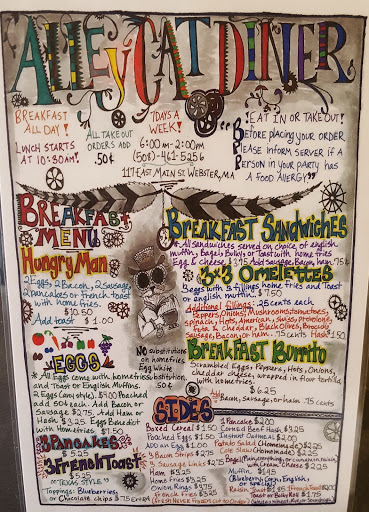 ALLEYCAT DINER
BREAKFAST
ALL DAY!
LUNCH STARTS
AT 10:30AM!
ALL TAKE OUT
ORDERS ADD
.50¢
7DAYS A
WEEK!
6:00AM-2:00PM
(508)-461-5256
117 EAST MAIN ST. WEBSTER, MA
EAT IN OR TAKE OUT!
BEFORE PLACING YOUR ORDER
PLEASE INFORM SERVER IF A
PERSON IN YOUR PARTY HAS
A FOOD ALLERGY
BREAKFAST
MENU
HUNGRY MAN
2 Eggs, 2 Bacon, 2 Sausage,
2 pancakes or french toast
with home fries.
$10.50
Add toast $1.00
EGGS
* All Eggs come with homefries
and Toast or English Muffins.
2 Eggs (any style). $4.00 Poached
add 50¢ each. Add Bacon or
Sausage $2.75. Add Ham or
Hash $3.25. Eggs Benedict
with Homefries $7.50
3 PANCAKES
$5.25
3 FRENCH TOAST
$5.25
"TEXAS STYLE"
Toppings: Blueberries
or Chocolate chips $.75 Extra
NO substitutions
on homefries
Egg white
.50¢
BREAKFAST SANDWICHES
* All Sandwiches served on choice of english
muffin, Bagel, Bulky, or Toast with home fries
Egg & cheese $3.75 Add Sausage, Bacon, ham, .75
3x3 OMELETTES
3 eggs with 3 fillings home fries and Toast
or english muffin. $7.50
Additional fillings: .25 cents each
Peppers, Onions, Mushrooms, tomatoes,
spinach, Feta, American, swiss, Provolone,
& cheddar, Black Olives, Broccoli
Sausage, Bacon, or ham .75 cents Hash 1.50
BREAKFAST BURRITO
Scrambled Eggs, Peppers, Onions,
cheddar cheese, wrapped in flour tortilla
with homefries.
$6.25
Add
Bacon, Sausage, or ham .75 cents
SIDES
Boxed Cereal $1.50
Poached Egg $1.50
ADD an Egg $1.00
3 Bacon Strips $2.75
Sausage Links $2.75
Ham $3.25
Home Fries $3.25
Onion Rings $3.75
French Fries $3.25
1 Pancake $2.00
Corned Beef Hash $3.25
Instant Oatmeal $2.00
Potato Salad (Homemade) $2.25
Cole Slaw (Homemade) $2.25
with Cream Cheese $2.25
Muffin $1.95
(Blueberry, Corn, English,
or special)
Raisin Toast $1.85
Toast or Bulky Roll $1.75